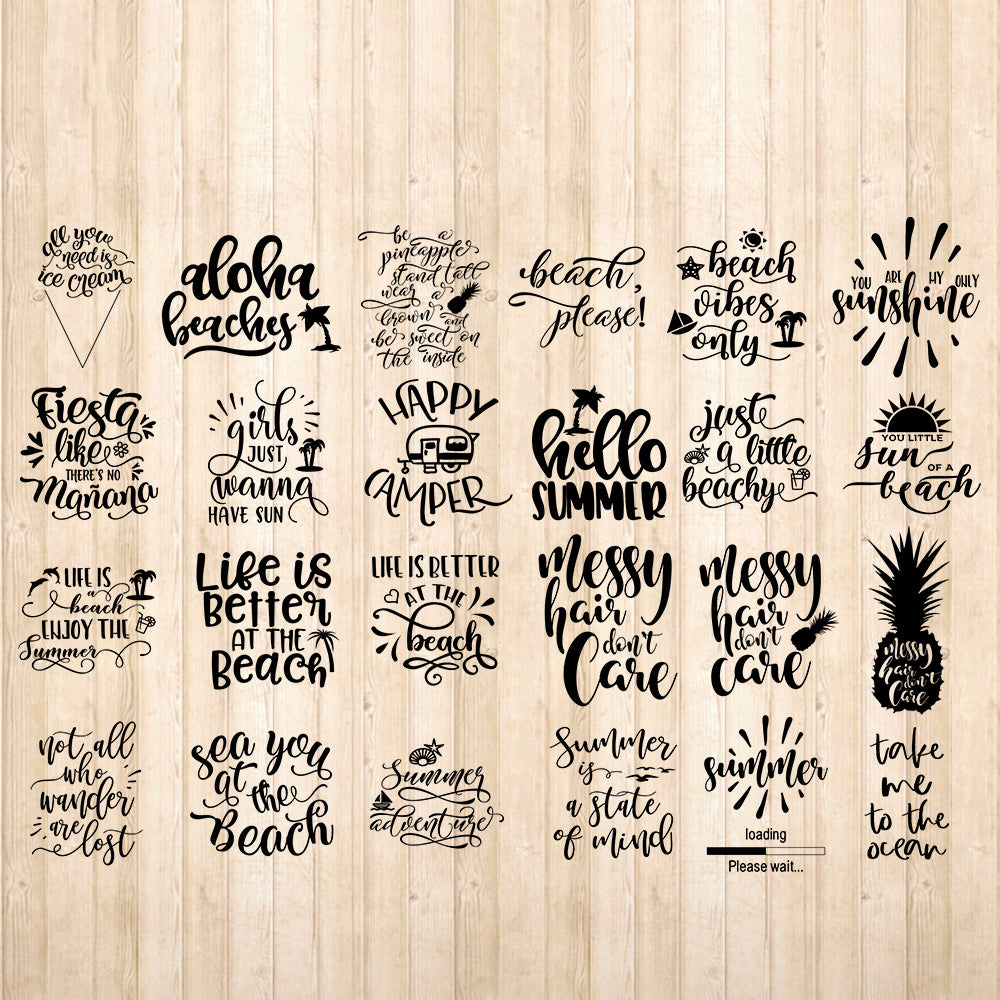 all you
need is
ice cream
aloha
beaches
be a
pineapple
stand tall
wear a
crown and
be sweet on
the inside
beach,
please!
beach
vibes
only
YOU ARE MY ONLY
sunshine
Fiesta
like
THERE'S NO
Mañana
girls
JUST
wanna
HAVE SUN
HAPPY
CAMPER
hello
SUMMER
just
a little
beachy
YOU LITTLE
sun
OF A
beach
LIFE IS
a
beach
ENJOY THE
Summer
Life is
Better
AT THE
Beach
LIFE IS BETTER
AT THE
beach
messy
hair
don't
Care
messy
hair
don't
care
messy
hair
don't
Care
not all
who
wander
are
lost
sea you
at
the
Beach
Summer
adventure
Summer
is
a state
of mind
summer
loading
Please wait...
take
me
to the
ocean